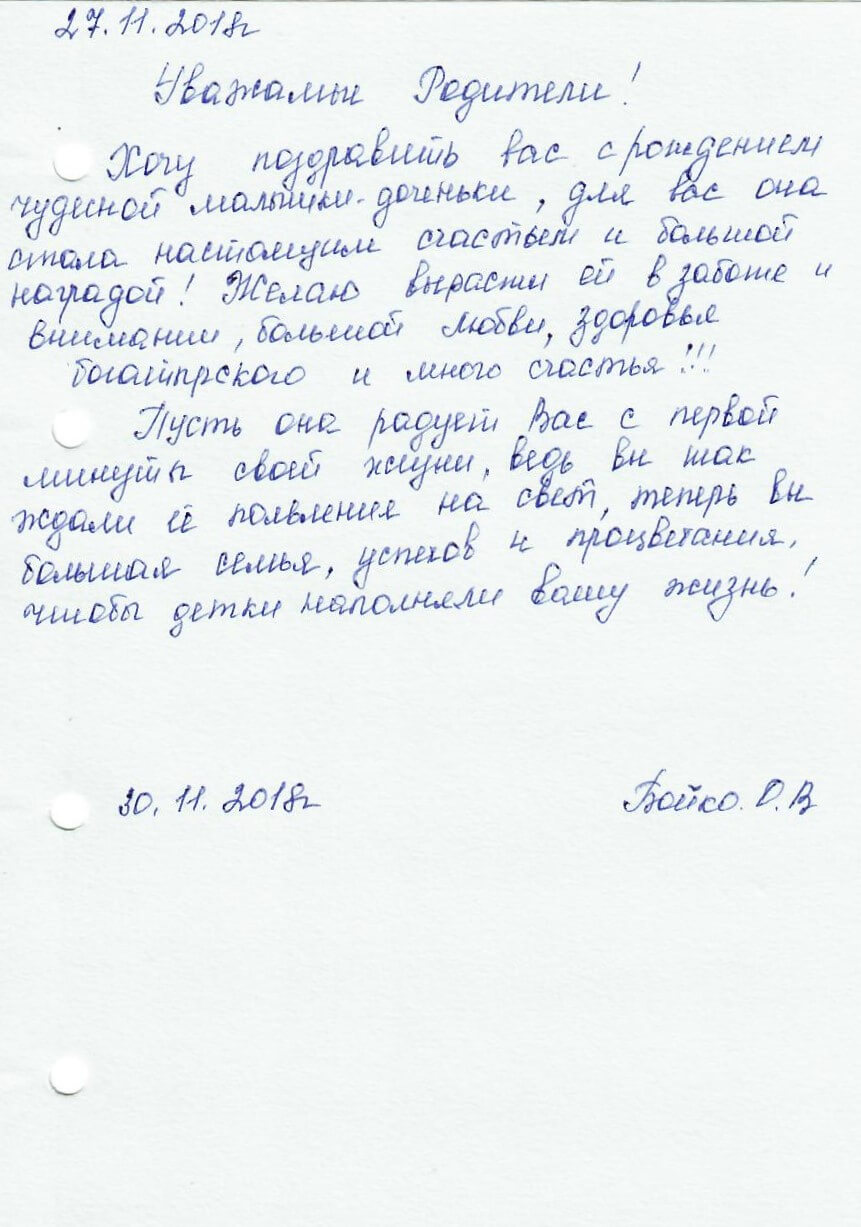 27.11.2018г
Уважамые Родители!
Хочу поздравить вас с рождением
чудесной малышки-доченьки, для вас она
стала настоящим счастьем и большой
наградой! Желаю вырасти ей в заботе и
внимании, большой любви, здоровья
богатырского и много счастья!!!
Пусть она радует Вас с первой
минуты своей жизни, ведь вы так
ждали её появления на свет, теперь вы
большая семья, успехов и процветания,
чтобы детки наполняли вашу жизнь!
30.11.2018г Бойко. О.В